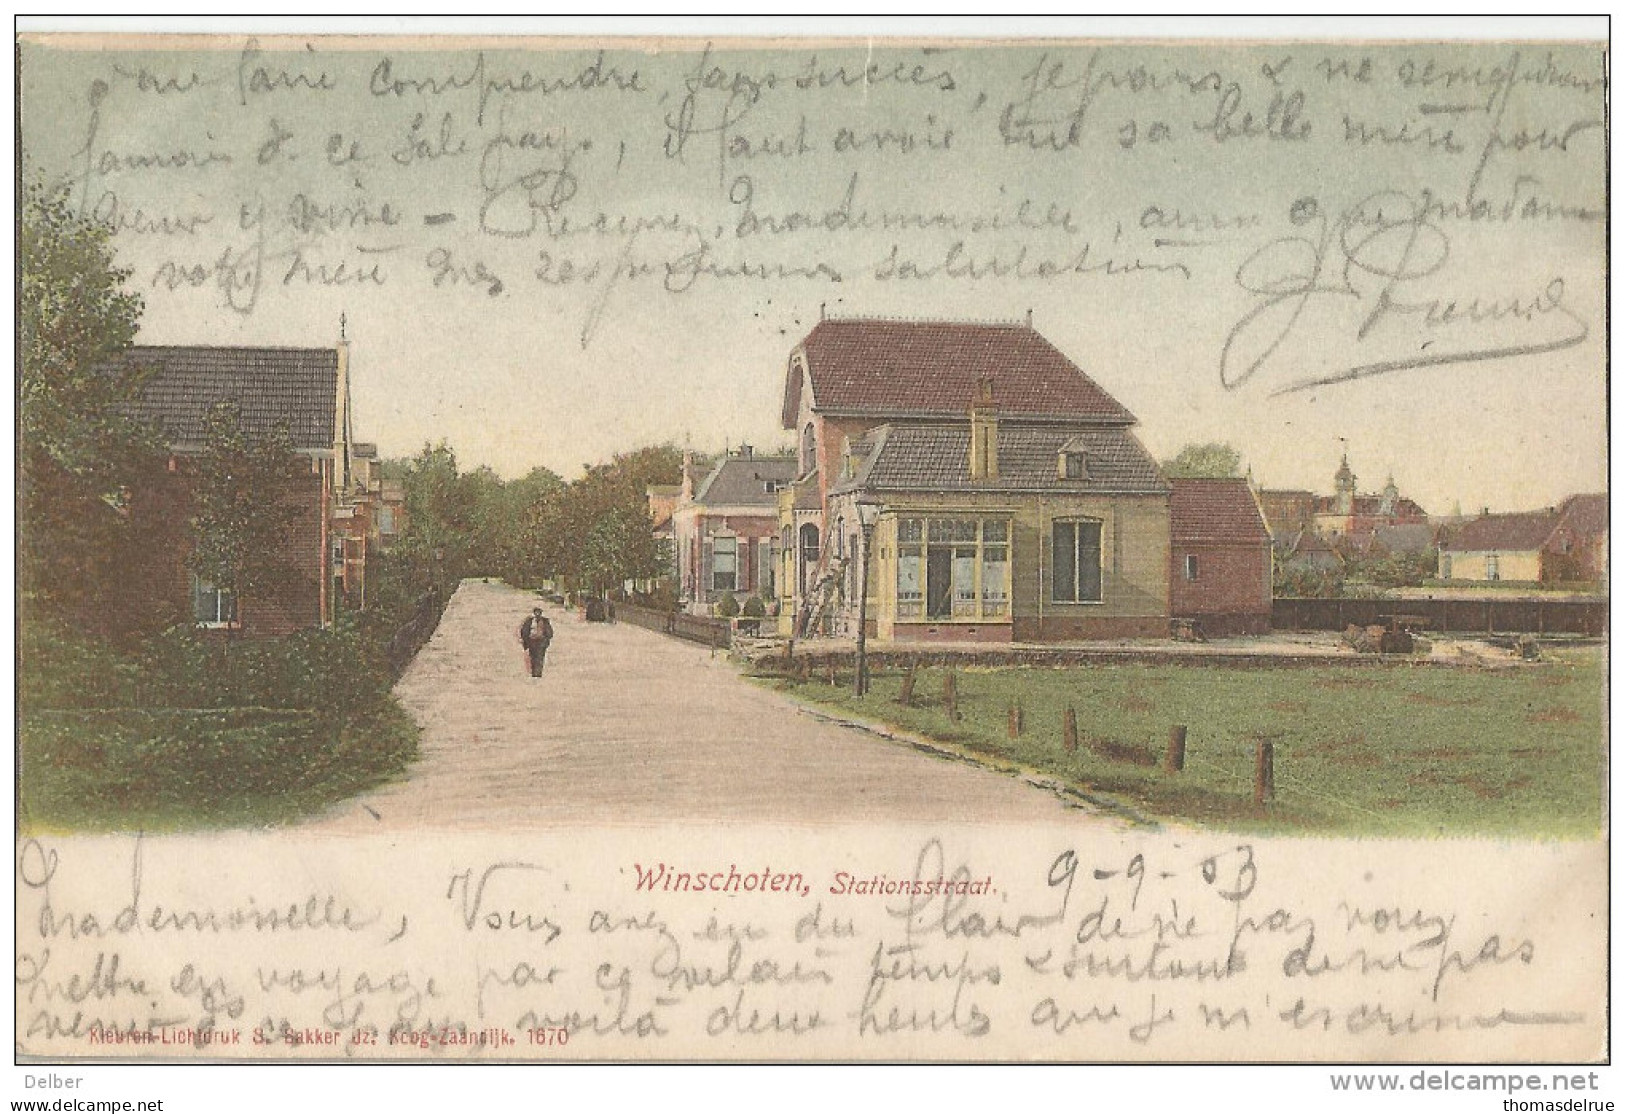 faire comprendre, sans succès, je pars & ne
jamais d. ce sale pays, il faut avoir tué sa belle mère pour
venir y vivre – Recevez, Mademoiselle, ainsi que Madame
votre mère mes respectueuses salutations
Winschoten, Stationsstraat.
9-9-03
Mademoiselle, Vous avez eu du flair de ne pas vous
mettre en voyage par ce vilain temps & surtout de ne pas
venir ds ce pays, voilà deux heures que je m'escrime
Kleuren-Lichtdruk S. Bakker Jz. Koog-Zaandijk. 1670
Delber
www.delcampe.net
thomasdelrue